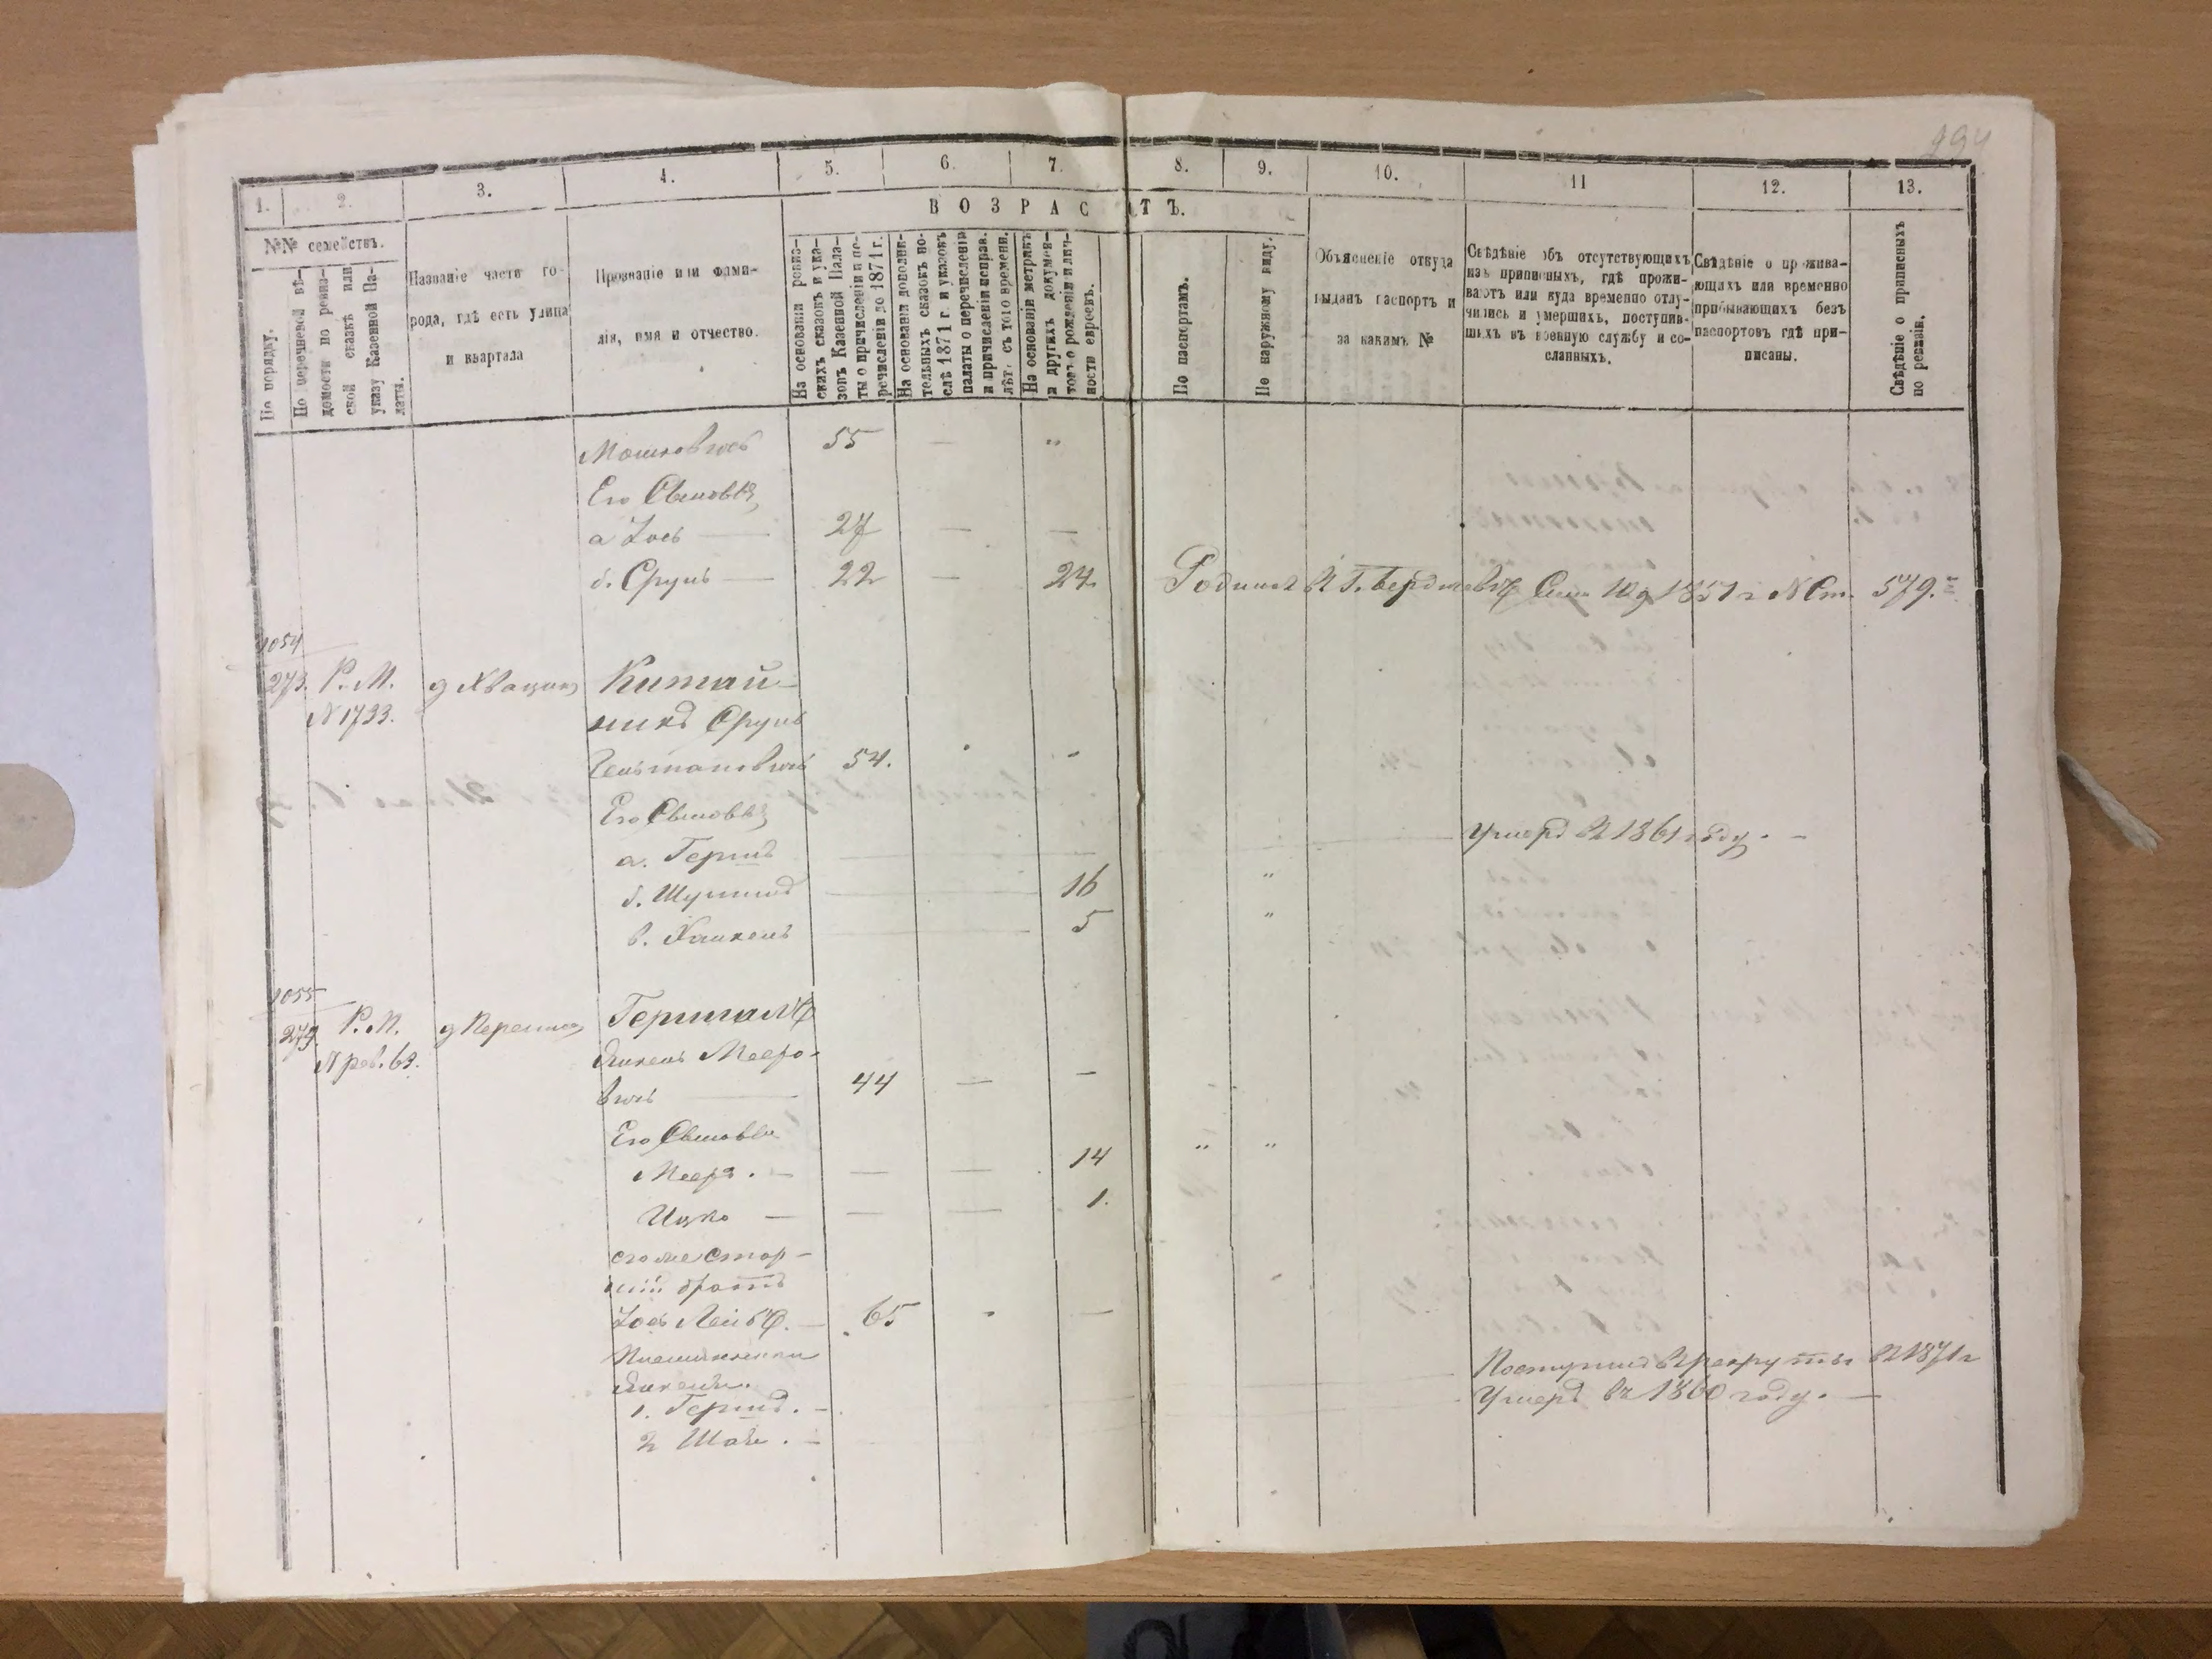 294
1. 2. 3. 4. 5. 6. 7. 8. 9. 10. 11 12. 13.
ВОЗРАСТЪ.
№№ семействъ.
По порядку.
По перечневой вѣ-
домости по ревиз-
ской сказкѣ или
указу Казенной Па-
латы.
Названіе части го-
рода, гдѣ есть улица
и квартала
Прозваніе или фами-
лія, имя и отчество.
На основаніи ревиз-
скихъ сказокъ и ука-
зовъ Казенной Пала-
ты о причисленіи и пе-
речисленіи до 1871 г.
На основаніи дополни-
тельныхъ сказокъ по-
слѣ 1871 г. и указовъ
палаты о перечисленіи
и причисленіи исправ.
лѣт. съ того времени.
На основаніи метрикъ
и другихъ докумен-
товъ о рожденіи и лич-
ности евреевъ.
По паспортамъ.
По наружному виду.
Объясненіе откуда
выданъ паспортъ и
за какимъ №
Свѣдѣніе объ отсутствующихъ
изъ приписныхъ, гдѣ прожи-
ваютъ или куда временно отлу-
чились и умершихъ, поступив-
шихъ въ военную службу и со-
сланныхъ.
Свѣдѣніе о прожива-
ющихъ или временно
прибывающихъ безъ
паспортовъ гдѣ при-
писаны.
Свѣдѣніе о приписныхъ
по ревизіи.
Мошковичь 55 — "
Его Сыновья
а Іось — 27 — —
б. Сруль — 22 — 24 Родился въ Г. Бердичевѣ 1851 г N Ст. 579.
1054
273. Р. М. Китай-
N 1733. никъ Сруль
54.
Его Сыновья
а. Гершъ Умеръ въ 1861 году. —
б. 16 "
в. Хаикель 5 "
1055
Р. М.
N рев. 63. Янкель Мееро-
вичь — 44 — —
Его Сыновья
Мееръ. — — — 14 " "
Ицко — — — 1.
его же стар-
шій братъ
Іось Лейба. — 65 - —
Племянники Поступилъ въ рекруты въ 1871 г
Янкеля.
1. Гершъ. — Умеръ въ 1860 году. —
2 Шая. —